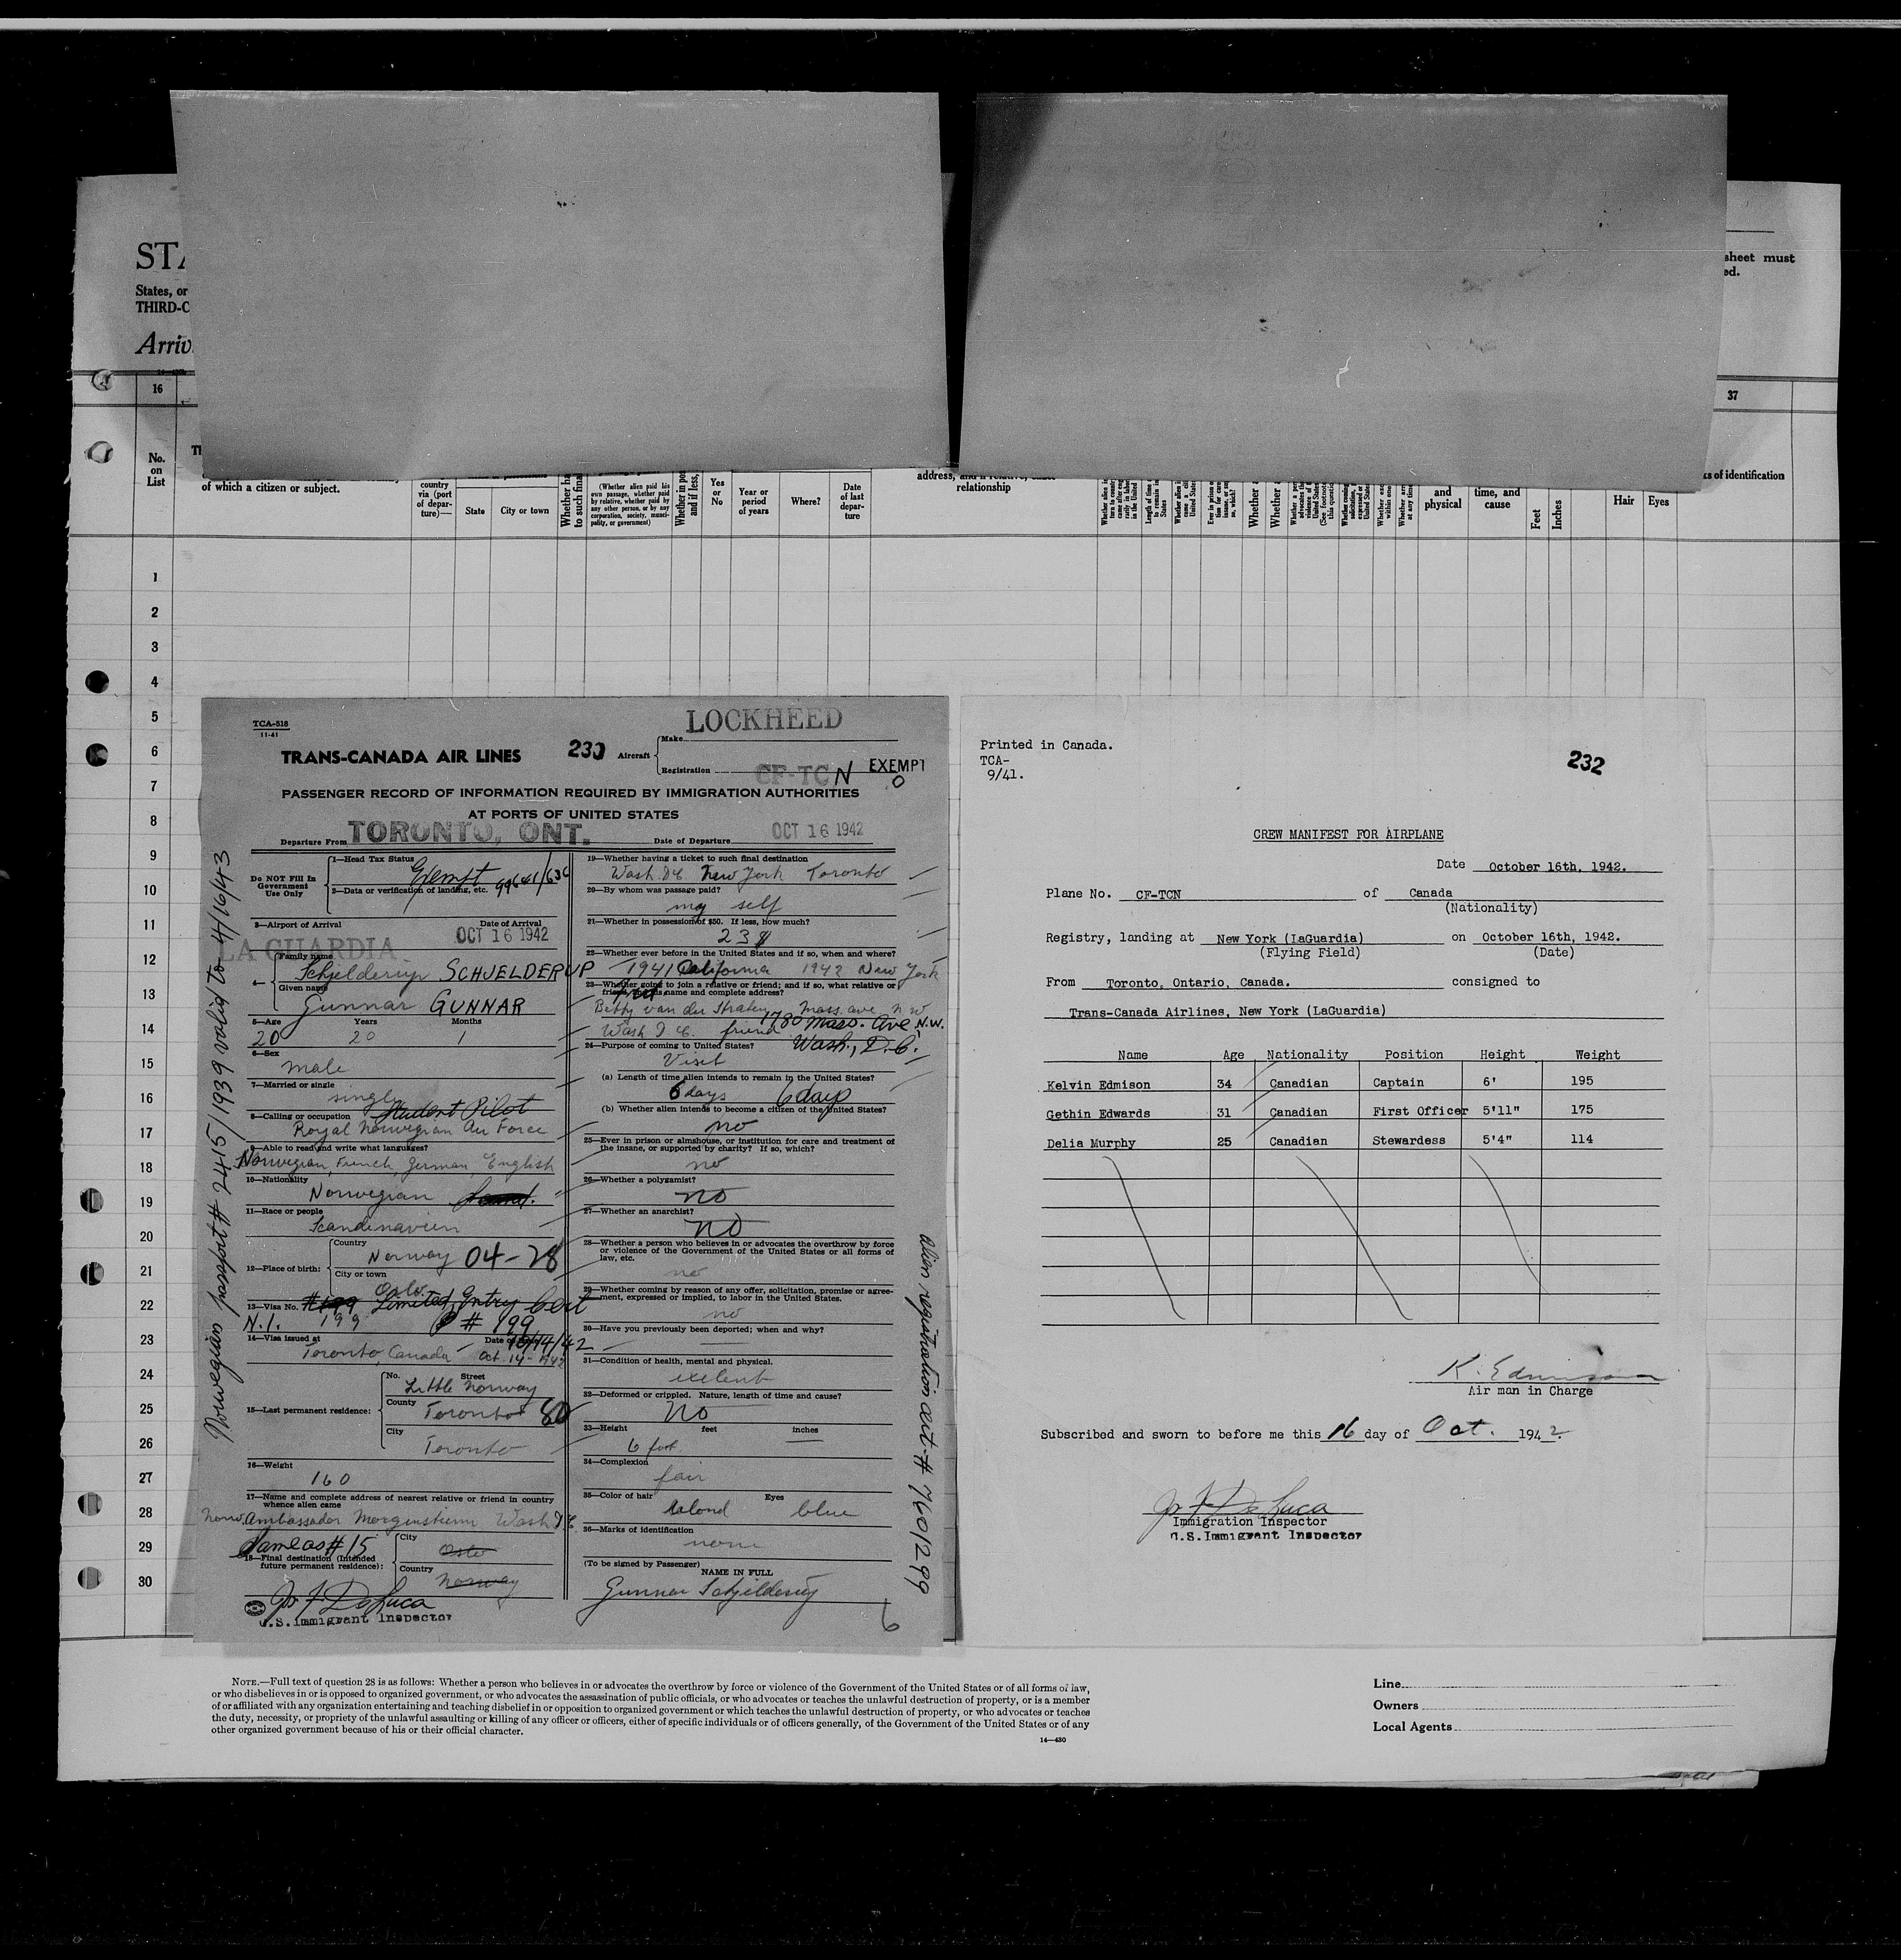 STA
States, or
THIRD-C
Arriv
sheet must
ed.
16
37
No.
on
List
of which a citizen or subject.
country
via (port
of depar-
ture)—
State
City or town
Whether ha
to such final
(Whether alien paid his
own passage, whether paid
by relative, whether paid
by any other person, or by any
corporation, society, munici-
pality, or government)
Whether in pos
and if less,
Yes
or
No
Year or
period
of years
Where?
Date
of last
depar-
ture
address, and if relative, exact
relationship
and
physical
time, and
cause
Feet
Inches
Hair
Eyes
ks of identification
1
2
3
4
5
6
7
8
9
10
11
12
13
14
15
16
17
18
19
20
21
22
23
24
25
26
27
28
29
30
TCA-518
11-41
LOCKHEED
TRANS-CANADA AIR LINES
230
Aircraft
Make
Registration CF-TCN EXEMPT
0
PASSENGER RECORD OF INFORMATION REQUIRED BY IMMIGRATION AUTHORITIES
AT PORTS OF UNITED STATES
Departure From TORONTO, ONT. Date of Departure OCT 16 1942
Do NOT Fill In
Government
Use Only
1—Head Tax Status
Exempt
2—Data or verification of landing, etc. 99641/636
3—Airport of Arrival
LA GUARDIA
Date of Arrival
OCT 16 1942
4—
Family name
Schjelderup SCHJELDERUP
Given name
Gunnar GUNNAR
5—Age Years Months
20 20 1
6—Sex
male
7—Married or single
single
8—Calling or occupation Student Pilot
Royal Norwegian Air Force
9—Able to read and write what languages?
Norwegian, French, German, English
10—Nationality
Norwegian
11—Race or people
Scandinavien
12—Place of birth:
Country
Norway 04-28
City or town
Oslo
13—Visa No. #199 Limited Entry Cert
N.I. 199 # 199
14—Visa issued at Date of 10/14/42
Toronto, Canada Oct. 14 - 1942
15—Last permanent residence:
No. Street
Little Norway
County
Toronto 80
City
Toronto
16—Weight
160
17—Name and complete address of nearest relative or friend in country
whence alien came
Norw. Ambassador Morgenstierne Wash D.C.
Same as #15
18—Final destination (Intended
future permanent residence):
City
Oslo
Country
Norway
Jos F DeLuca
U.S. Immigrant Inspector
Norwegian passport # 2415/1939 valid to 4/16/43
19—Whether having a ticket to such final destination
Wash. DC New York Toronto
20—By whom was passage paid?
my self
21—Whether in possession of $50. If less, how much?
238
22—Whether ever before in the United States and if so, when and where?
1941 California 1942 New York
23—Whether going to join a relative or friend; and if so, what relative or
friend, his name and complete address?
Betty van der Straten Mass. ave N W
Wash D.C. friend 1780 Mass. Ave N.W.
24—Purpose of coming to United States? Wash., D.C.
Visit
(a) Length of time alien intends to remain in the United States?
6 days 6 days
(b) Whether alien intends to become a citizen of the United States?
no
25—Ever in prison or almshouse, or institution for care and treatment of
the insane, or supported by charity? If so, which?
no
26—Whether a polygamist?
no
27—Whether an anarchist?
no
28—Whether a person who believes in or advocates the overthrow by force
or violence of the Government of the United States or all forms of
law, etc.
no
29—Whether coming by reason of any offer, solicitation, promise or agree-
ment, expressed or implied, to labor in the United States.
no
30—Have you previously been deported; when and why?
31—Condition of health, mental and physical.
exelent
32—Deformed or crippled. Nature, length of time and cause?
no
33—Height feet inches
6 foot.
34—Complexion
fair
35—Color of hair Eyes
blond blue
36—Marks of identification
none
(To be signed by Passenger)
NAME IN FULL
Gunnar Schjelderup
6
Alien registration cert # 7601299
Printed in Canada.
TCA-
9/41.
232
CREW MANIFEST FOR AIRPLANE
Date October 16th, 1942.
Plane No. CF-TCN of Canada
(Nationality)
Registry, landing at New York (LaGuardia) on October 16th, 1942.
(Flying Field) (Date)
From Toronto, Ontario, Canada. consigned to
Trans-Canada Airlines, New York (LaGuardia)
Name Age Nationality Position Height Weight
Kelvin Edmison 34 Canadian Captain 6' 195
Gethin Edwards 31 Canadian First Officer 5'11" 175
Delia Murphy 25 Canadian Stewardess 5'4" 114
K. Edmison
Air man in Charge
Subscribed and sworn to before me this 16 day of Oct. 1942.
Jos F DeLuca
Immigration Inspector
U.S. Immigrant Inspector
NOTE.—Full text of question 28 is as follows: Whether a person who believes in or advocates the overthrow by force or violence of the Government of the United States or of all forms of law,
or who disbelieves in or is opposed to organized government, or who advocates the assassination of public officials, or who advocates or teaches the unlawful destruction of property, or is a member
of or affiliated with any organization entertaining and teaching disbelief in or opposition to organized government or which teaches the unlawful destruction of property, or who advocates or teaches
the duty, necessity, or propriety of the unlawful assaulting or killing of any officer or officers, either of specific individuals or of officers generally, of the Government of the United States or of any
other organized government because of his or their official character.
14—430
Line
Owners
Local Agents